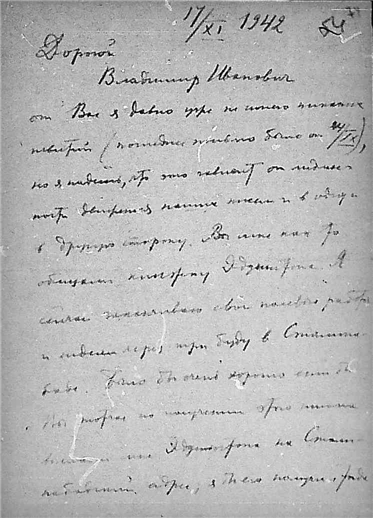 17/XI 1942
Дорогой
Владимир Иванович
от Вас я давно уже не имею никаких
известий (последнее письмо было от 24/IX),
но я надеюсь, что это зависит от медлен-
ности движения наших писем и в одну и
в другую сторону. Вы мне как то
обещали книжку Эддингтона. Я
сейчас заканчиваю свои полевые работы
и недели через три буду в Сталина-
баде. Было бы очень хорошо если бы
Вы тотчас по получении этого письма
мне Эддингтона на Стали-
набадский адрес, я бы его получил,